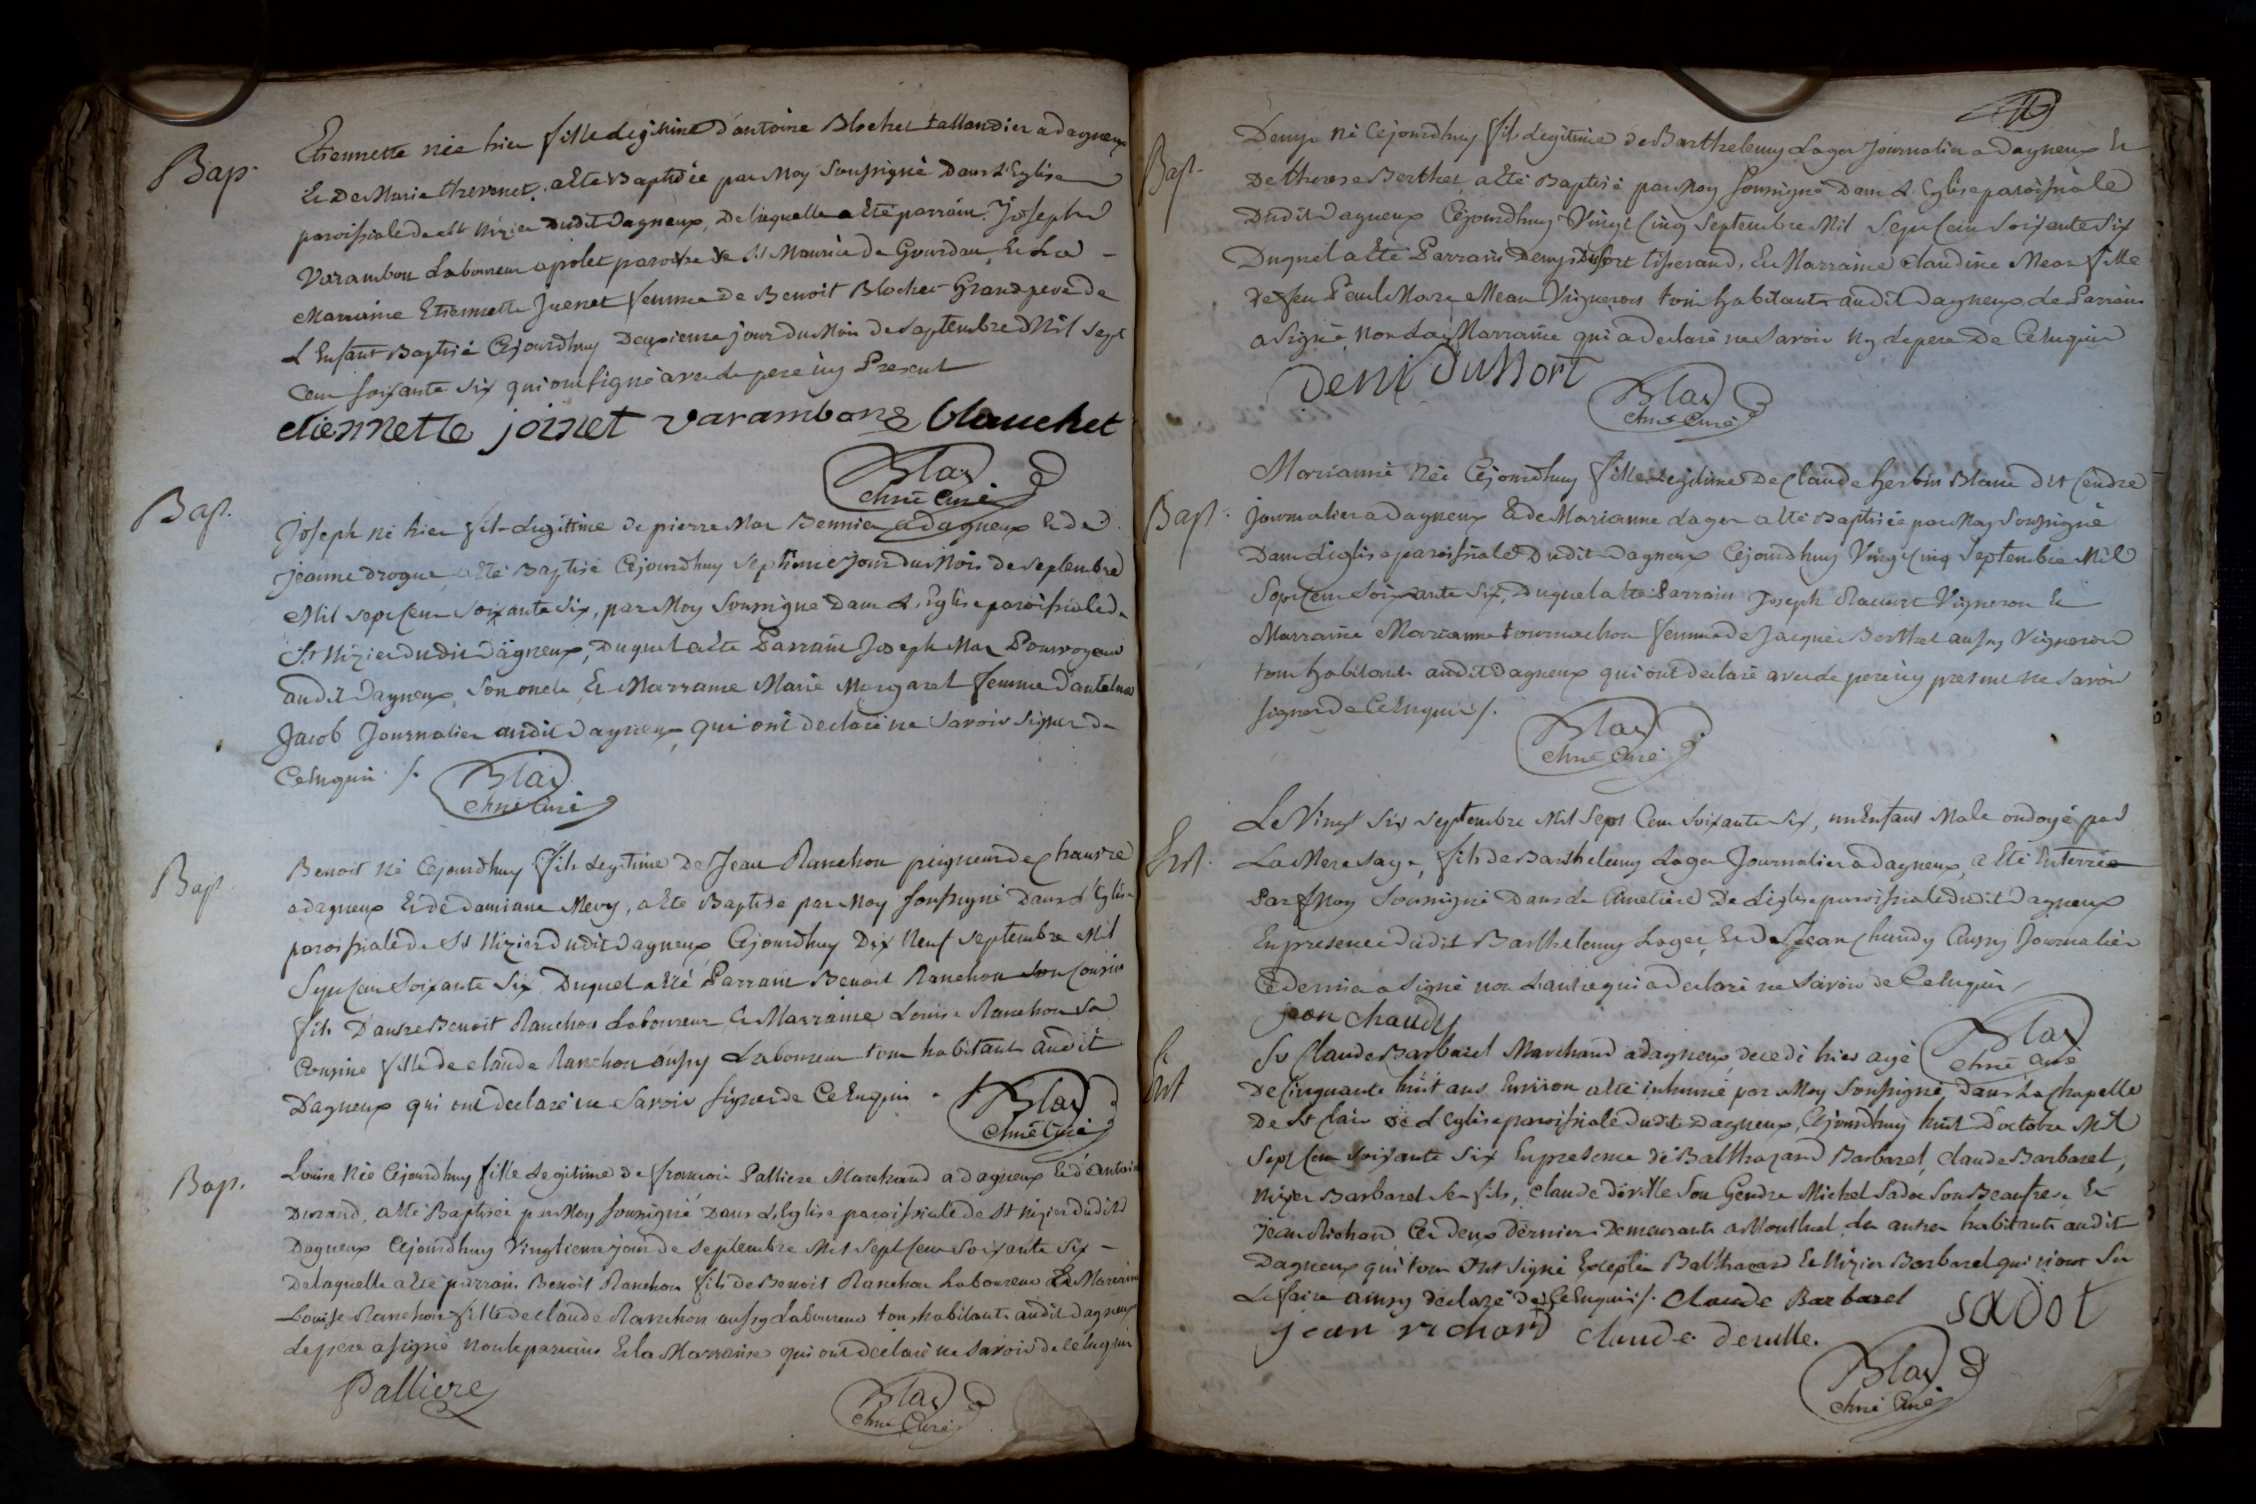 Bap.
Etiennette née hier fille legitime d'antoine Blochet tallandier a dagneux
Et De Marie thevenet, a eté Baptisée par Moy soussigné Dans L'Eglise
paroissiale de st Nizier dudit Dagneux, De laquelle a Eté parrain Joseph
Varambon Laboureur a polet paroisse de St Maurice de Gourdan, Et La
Marraine Etiennette Juenet femme de Benoit Blochet Grand pere de
L'Enfant Baptisé Cejourdhuy Deuxieme jour du Mois de septembre Mil sept
Cent soixante six qui ont signé avec le pere icy Present
etiennette joinet varambon blauchet
Blax
chne Curé
Bap.
Joseph né hier fils Legittime de pierre Mar Bennier a dagneux Et de
jeanne drogue, a eté Baptisé Cejourdhuy septieme jour du Mois de septembre
Mil sept Cent soixante six, par Moy soussigné Dans L'Eglise paroissiale de
St Nizier dudit Dagneux, Duquel a eté Parrain Joseph Mar
audit Dagneux, son oncle, Et Marraine Marie Margaret femme d'antelme
Jacob Journalier audit Dagneux, qui ont declaré ne savoir signer de
Ce Enquis /.
Blax
chne Curé
Bap.
Benoit né Cejourdhuy fils Legitime De Jean Ranchon peigneur de chanvre
a dagneux Et de damiane Mery, a eté Baptisé par Moy soussigné Dans L'Eglise
paroissiale de St Nizier dudit Dagneux Cejourdhuy Dix Neuf septembre Mil
Sept Cent soixante six. Duquel a Eté Parrain Benoit Ranchon son Cousin
fils D'autre Benoit Ranchon Laboureur, Et Marraine Louise Ranchon sa
Cousine fille de claude Ranchon aussy Laboureur tous habitants audit
Dagneux qui ont declaré ne savoir signer de Ce Enquis .
Blax
chne Curé
Bap.
Louise Née Cejourdhuy fille Legitime de francois Palliere Marchand a dagneux Et d'antoinette
Durand, a eté Baptisée par Moy soussigné Dans L'Eglise paroissiale de St nizier dudit
Dagneux Cejourdhuy Vingtieme jour de septembre Mil sept Cent soixante six
De laquelle a eté parrain Benoit Ranchon fils de Benoit Ranchon Laboureur Et Marraine
Louise Ranchon fille de claude Ranchon aussy Laboureur tous habitants audit dagneux
Le pere a signé non le parrain Et la Marraine qui ont declaré ne savoir de ce Enquis
Palliere
Blax
chne Curé
Bap.
Denys Né Cejourdhuy fils Legitime de Barthelemy Lager Journalier a Dagneux Et
De therese Berthet a eté Baptisé par Moy soussigné Dans L'Eglise paroissiale
Dudit Dagneux Cejourdhuy Vingt Cinq Septembre Mil Sept Cent soixante six
Duquel a eté Parrain Denys Dufort tisserand, Et Marraine Claudine Mean fille
De feu Paul Marc Mean Vigneron tous habitants audit Dagneux le Parrain
a signé, non la Marraine qui a declaré ne savoir Ny le pere De Ce Enquis
Deni duffort
Blax
chne Curé
Bap.
Marianne Née Cejourdhuy fille Legitime De Claude herbin Blanc dit Cendre
Journalier a Dagneux Et de Marianne Lager a eté Baptisée par Moy soussigné
Dans L'eglise paroissiale Dudit Dagneux Cejourdhuy Vingt Cinq Septembre Mil
Sept Cent soixante six, Duquel a eté Parrain Joseph Vigneron Et
Marraine Marianne tournachon femme de Jacques Berthet aussy Vigneron
tous habitants audit Dagneux qui ont declaré avec le pere icy present ne savoir
signer de Ce Enquis /.
Blax
chne Curé
Ent.
Le Vingt six septembre Mil Sept Cent soixante six, un Enfant Male ondoyé par
La Mere sage, fils de Barthelemy Lager Journalier a Dagneux, a Eté Enterré
Par Moy soussigné Dans le Cimetiere De L'eglise paroissiale dudit Dagneux
En presence dudit Barthelemy Lager, Et de Jean Chaudy aussy Journalier
Ce dernier a signé non L'autre qui a declaré ne savoir de Ce Enquis
jean chaudy
Blax
chne Curé
Ent
Sr Claude Barbaret Marchand a dagneux, decedé hier agé
De Cinquante huit ans Environ a eté inhumé par Moy soussigné, Dans La Chapelle
De St Clair de L'eglise paroissiale dudit Dagneux, Cejourdhuy huit D'octobre Mil
Sept Cent soixante six En presence de Balthazard Barbaret, Claude Barbaret,
Nizier Barbaret ses fils, Claude deville son Gendre Michel Sadot son Beaufrere Et
Jean Richard Ces deux derniers Demeurants a Montluel, les autres habitants audit
Dagneux qui tous ont signé Excepté Balthazard Et Nizier Barbaret qui n'ont su
Le faire ainsy declaré De Ce Enquis /. Claude Barbaret sadot
jean richard claude deville.
Blax
chne Curé